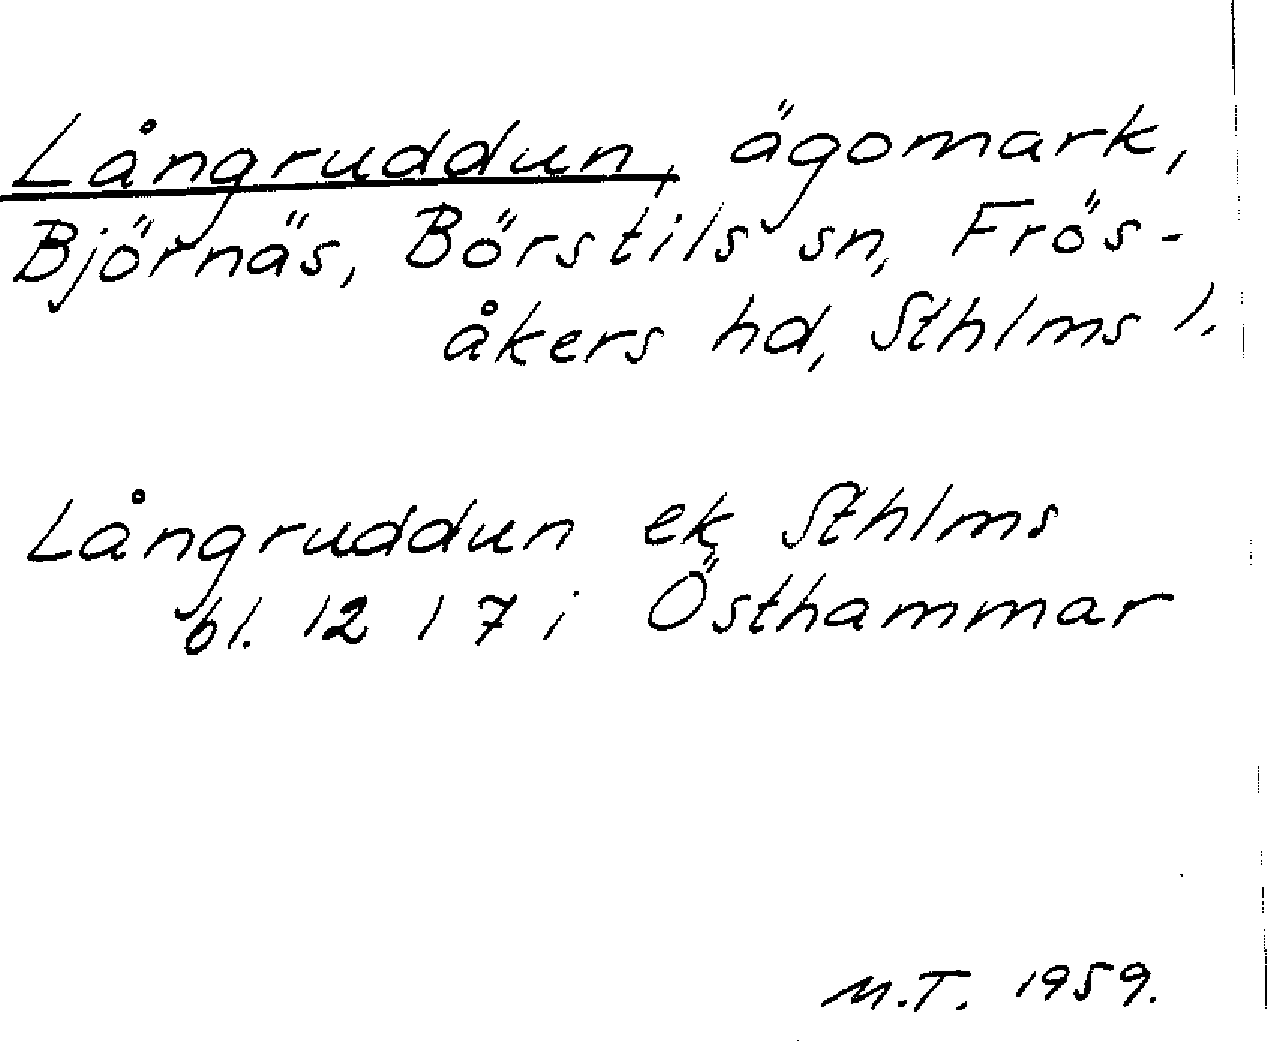 Långruddun, ägomark,
Björnäs, Börstils sn, Frös-
åkers hd, Sthlms l.
Långruddun ek Sthlms
bl. 12 I 7 i Östhammar
M.T. 1959.